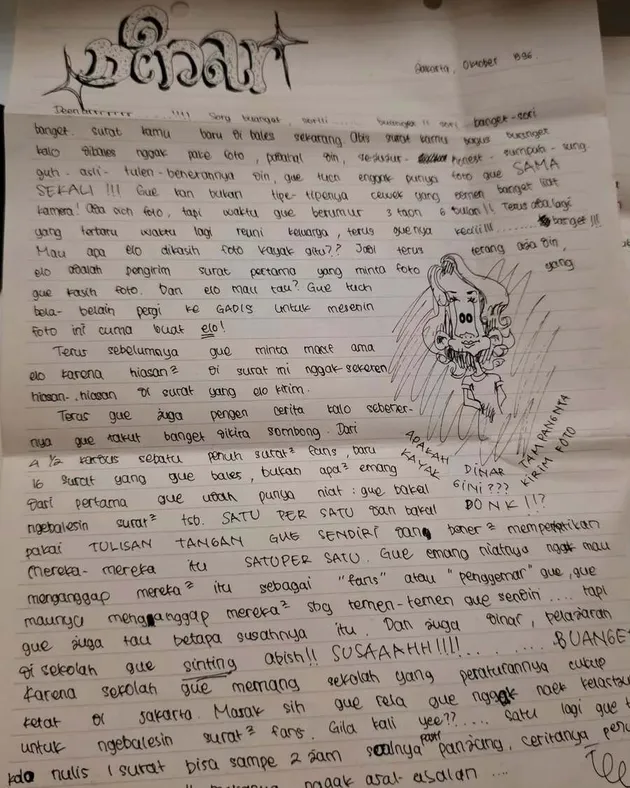 Jakarta, Oktober 1996
Deenarrrrrrr .....!!!! Sory buanget, soriii ..... buanget!! sori banget-sori
banget. surat kamu baru di bales sekarang. Abis surat kamu bagus buanget
kalo dibales nggak pake foto, padahal Din, se-jujur- honest - sumpah - sung-
guh - asli - tulen-beneran nya Din, gue tuch enggak punya foto gue SAMA
SEKALI !!! Gue kan bukan tipe-tipenya cewek yang demen banget liat
kamera! Ada sich foto, tapi waktu gue berumur 3 taon 6 bulan!! Terus ada lagi
yang terbaru waktu lagi reuni keluarga, terus gue nya kecill!! ......... banget!!!
Mau apa elo dikasih foto kayak gitu?? Jadi terus terang aja Din,
elo adalah pengirim surat pertama yang minta foto yang
gue kasih foto. Dan elo mau tau? Gue tuch
bela-belain pergi ke GADIS untuk mesenin
foto ini cuma buat elo!
Terus sebelumnya gue minta maaf ama
elo karena hiasan² di surat ini nggak sekeren
hiasan-hiasan di surat yang elo kirim.
Terus gue juga pengen cerita kalo sebener-
nya gue takut banget dikira sombong. Dari
4 ½ kardus sepatu penuh surat² fans, baru
16 surat yang gue bales, bukan apa² emang
dari pertama gue udah punya niat : gue bakal
ngebalesin surat² tsb. SATU PER SATU dan bakal
pakai TULISAN TANGAN GUE SENDIRI dan bener² memperhatikan
mereka-mereka itu SATU PER SATU. Gue emang niatnya nggak mau
menganggap mereka² itu sebagai "fans" atau "penggemar" gue, gue
maunya menganggap mereka² sbg temen-temen gue sendiri .... tapi
gue juga tau betapa susahnya itu. Dan juga Dinar, pelajaran
di sekolah gue sinting abish!! SUSAAAHH!!!! ......... BUANGE
karena sekolah gue memang sekolah yang peraturannya cukup
ketat di Jakarta. Masak sih gue rela gue nggak naek kelas
untuk ngebalesin surat² fans. Gila kali yee??..... Satu lagi gue
kalo nulis 1 surat bisa sampe 2 jam soalnya pasti panjang, ceritanya
nggak asal-asalan ....
APAKAH DINAR TAMPANGNYA
KAYAK GINI??? KIRIM FOTO
DONK!!?